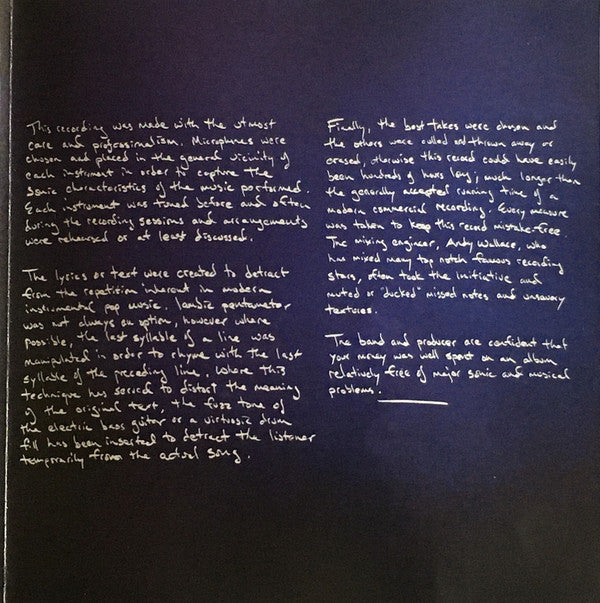 This recording was made with the utmost
care and professionalism. Microphones were
chosen and placed in the general vicinity of
each instrument in order to capture the
sonic characteristics of the music performed.
Each instrument was tuned before and often
during the recording sessions and arrangements
were rehearsed or at least discussed.
The lyrics or text were created to detract
from the repetition inherent in modern
instrumental pop music. Iambic pentameter
was not always an option, however where
possible, the last syllable of a line was
manipulated in order to rhyme with the last
syllable of the preceding line. Where this
technique has served to distort the meaning
of the original text, the fuzz tone of
the electric bass guitar or a virtuosic drum
fill has been inserted to detract the listener
temporarily from the actual song.
Finally, the best takes were chosen and
the others were culled and thrown away or
erased, otherwise this record could have easily
been hundreds of hours long, much longer than
the generally accepted running time of a
modern commercial recording. Every measure
was taken to keep this record mistake-free.
The mixing engineer, Andy Wallace, who
has mixed many top notch famous recording
stars, often took the initiative and
muted or "ducked" missed notes and unsavory
textures.
The band and producer are confident that
your money was well spent on an album
relatively free of major sonic and musical
problems.